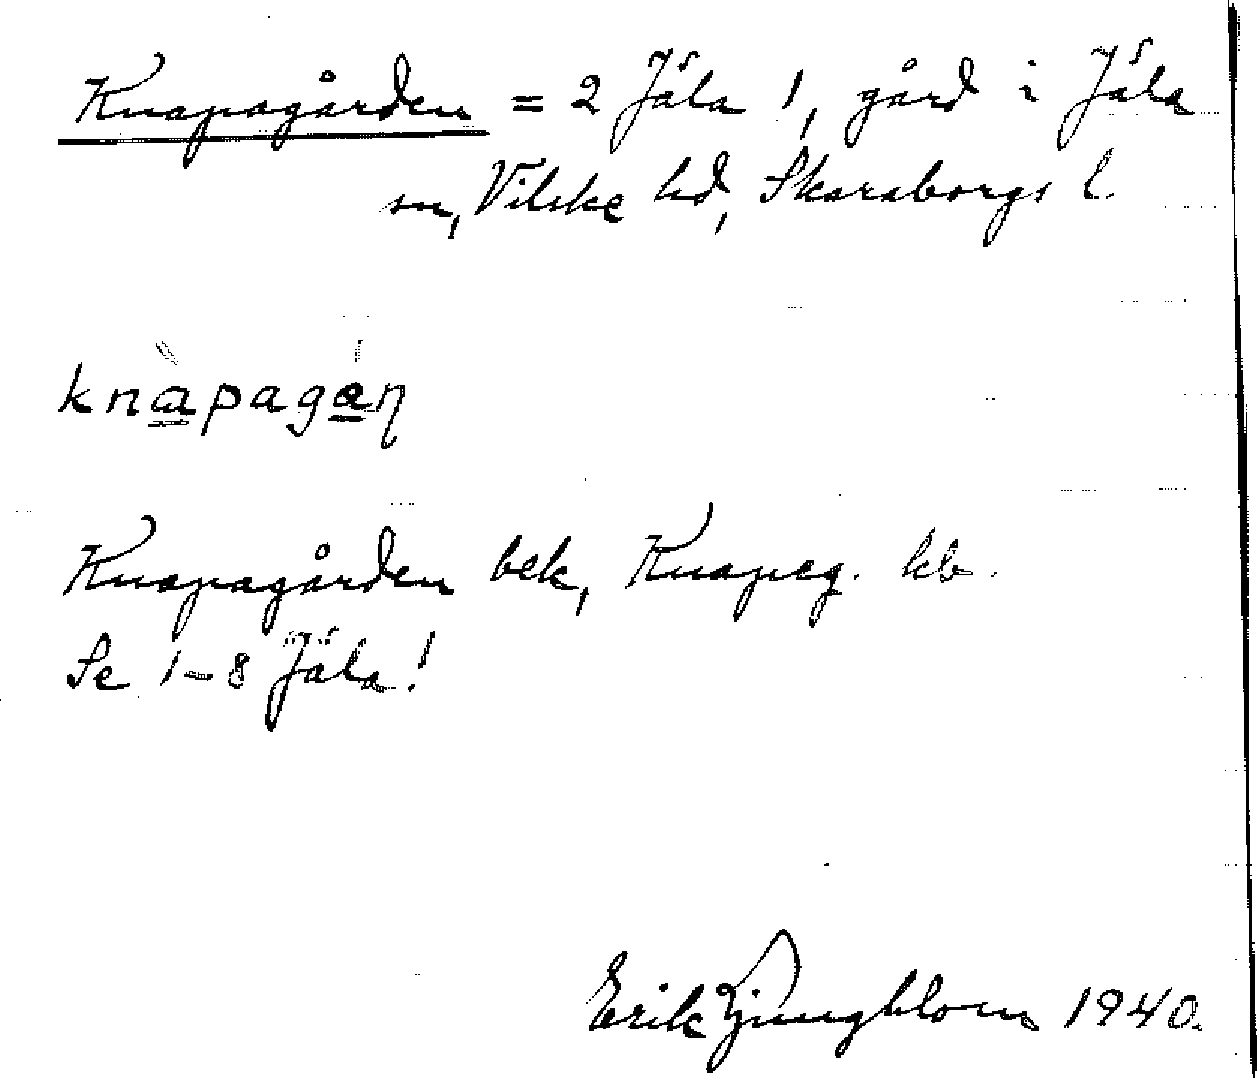 Knapagården = 2 Jäla 1, gård i Jäla
sn, Vilske hd, Skaraborgs l.
knàpagán
Knapagården bek, Knapeg. kb.
Se 1-8 Jäla!
Erik Ljungblom 1940.